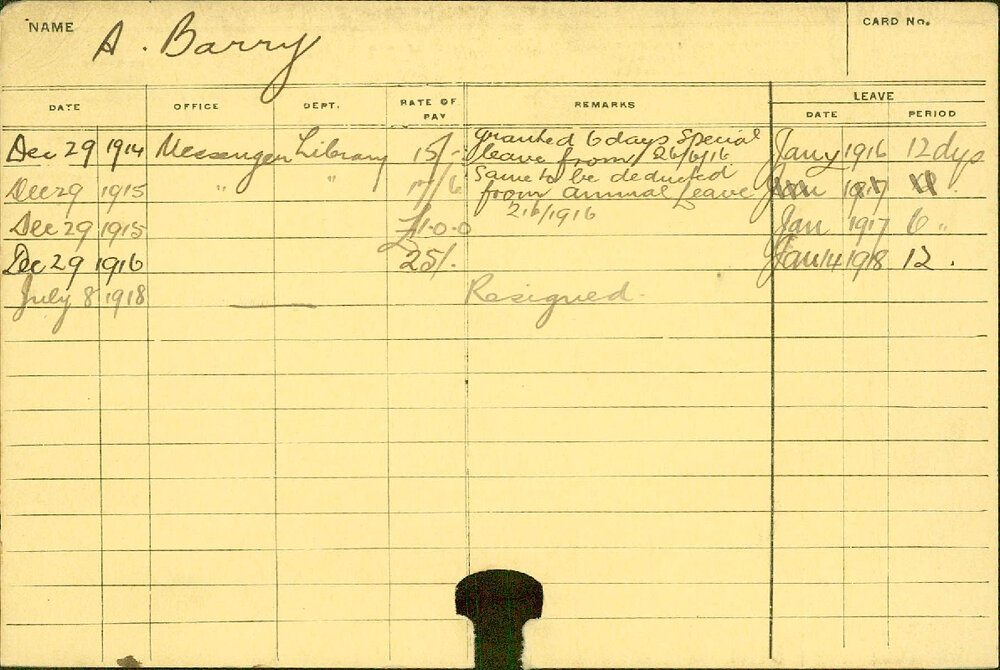 NAME A. Barry CARD No.
LEAVE
DATE OFFICE DEPT. RATE OF PAY REMARKS DATE PERIOD
Dec 29 1914 Messenger Library 15/- Granted 6 days Special Jany 1916 12 dys
leave from 26/6/16
Dec 29 1915 " " 17/6 Same to be deducted Jan 1917
from annual leave
Dec 29 1915 £1-0-0 2/6/1916 Jan 1917 6 "
Dec 29 1916 25/. Jan 14 1918 12 .
July 8 1918 Resigned.